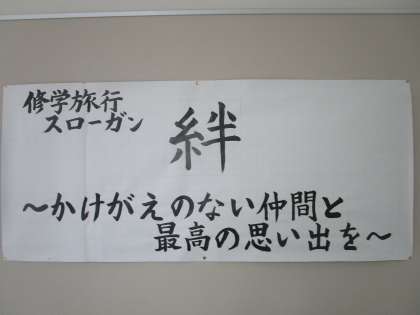 修学旅行
スローガン
絆
～かけがえのない仲間と
最高の思い出を～